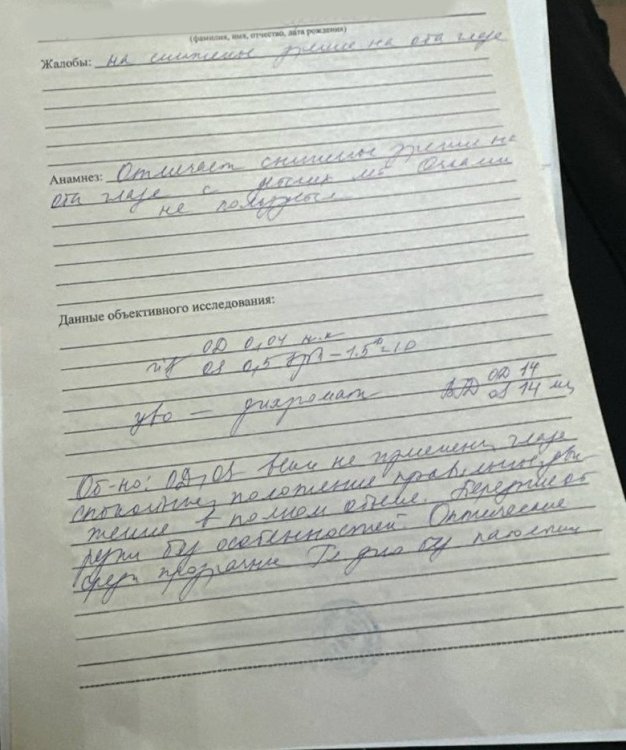 (фамилия, имя, отчество, дата рождения)
Жалобы: на снижение зрение на оба глаза
Анамнез: Отмечает снижение зрения на
оба глаза с лет Очками
не пользуется
Данные объективного исследования:
OD 0,04 н.к
vis OS 0,5 sph -1.5D = 1.0
цво — дихромат ВГД OD 14
OS 14 мм
Об-но: OD, OS веки не изменены, глаза
спокойные, положение правильное, дви
жение в полном объеме. Передние от
резки без особенностей. Оптические
среды прозрачны Гл дно без патологии